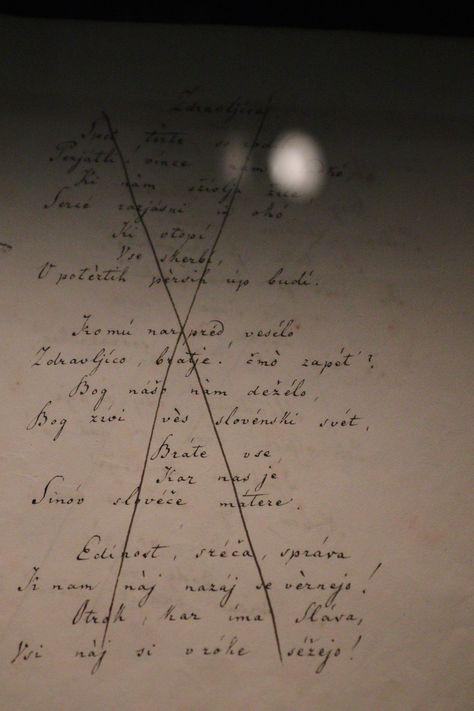 Zdravljica
Spet terte so
Perjatli! vince nam
Ki nam oživlja žile
Sercé razjasni in okó
Ki utopi
Vse skerbi,
V potèrtih pèrsih úp budí.
Komú narpréd vesélo
Zdravljico, bratje! čmò zapét?
Bog nášo nàm deželo,
Bog živi vès slovénski svét,
Bráte vse,
Kar nas je
Sinóv slovéče matere.
Edinost, sréča, správa
K nam nàj nazáj se vèrnejo!
Otrók, kar ima Sláva,
Vsi nàj si v róke séžejo!